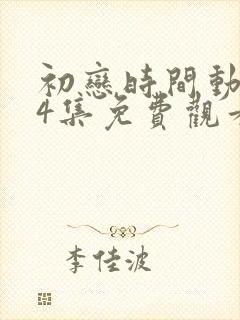 初戀時間動
4集免費觀
李佳波